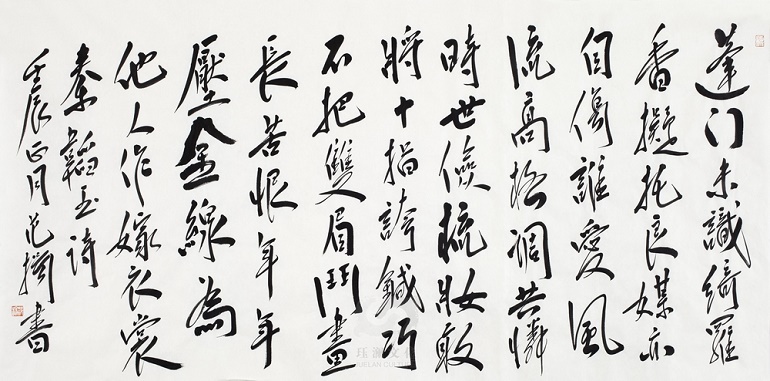 蓬門未識綺羅
香擬托良媒亦
自傷誰愛風
流高格調共憐
時世儉梳妝敢
將十指誇鍼巧
不把雙眉鬥畫
長苦恨年年
壓金線為
他人作嫁衣裳
秦韜玉詩
壬辰正月范書